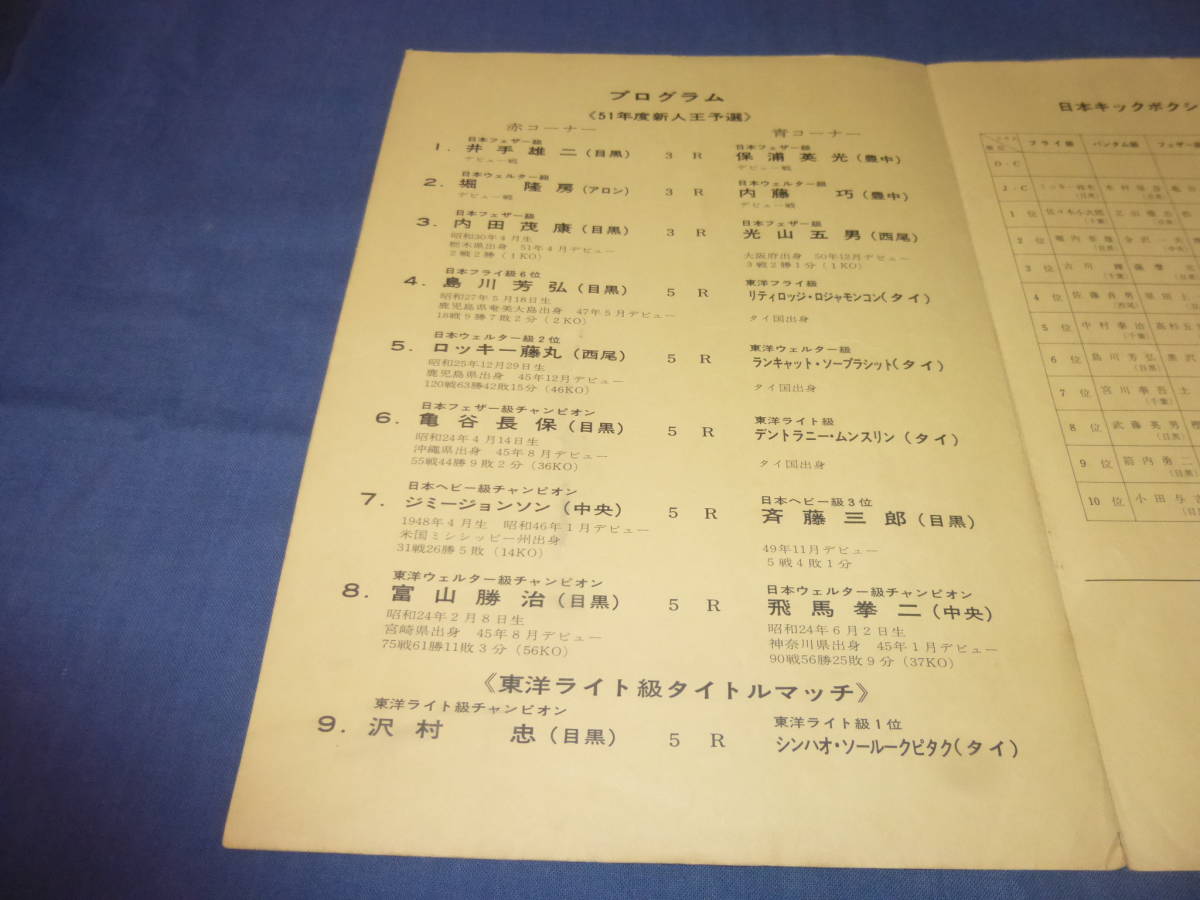 プログラム
《51年度新人王予選》
赤コーナー 青コーナー
日本フェザー級 日本フェザー級
1. 井手雄二(目黒) 3 R 保浦英光(豊中)
デビュー戦 デビュー戦
日本ウェルター級 日本ウェルター級
2. 堀 隆房(アロン) 3 R 内藤 巧(豊中)
デビュー戦 デビュー戦
日本フェザー級 日本フェザー級
3. 内田茂康(目黒) 3 R 光山五男(西尾)
昭和30年4月生
栃木県出身 51年4月デビュー 大阪府出身 50年12月デビュー
2戦2勝(1KO) 3戦2勝1分(1KO)
日本フライ級6位 東洋フライ級
4. 島川芳弘(目黒) 5 R リティロッジ・ロジャモンコン(タイ)
昭和27年5月18日生
鹿児島県奄美大島出身 47年5月デビュー タイ国出身
18戦9勝7敗2分(2KO)
日本ウェルター級2位 東洋ウェルター級
5. ロッキー藤丸(西尾) 5 R ランキャット・ソープラシット(タイ)
昭和25年12月29日生
鹿児島県出身 45年12月デビュー タイ国出身
120戦63勝42敗15分(46KO)
日本フェザー級チャンピオン 東洋ライト級
6. 亀谷長保(目黒) 5 R デントラニー・ムンスリン(タイ)
昭和24年4月14日生
沖縄県出身 45年8月デビュー タイ国出身
55戦44勝9敗2分(36KO)
日本ヘビー級チャンピオン 日本ヘビー級3位
7. ジミージョンソン(中央) 5 R 斉藤三郎(目黒)
1948年4月生 昭和46年1月デビュー
米国ミシシッピー州出身 49年11月デビュー
31戦26勝5敗(14KO) 5戦4敗1分
東洋ウェルター級チャンピオン 日本ウェルター級チャンピオン
8. 富山勝治(目黒) 5 R 飛馬拳二(中央)
昭和24年2月8日生 昭和24年6月2日生
宮崎県出身 45年8月デビュー 神奈川県出身 45年1月デビュー
75戦61勝11敗3分(56KO) 90戦56勝25敗9分(37KO)
《東洋ライト級タイトルマッチ》
東洋ライト級チャンピオン 東洋ライト級1位
9. 沢村 忠(目黒) 5 R シンハオ・ソールークピタク(タイ)
日本キックボクシ
フライ級 バンタム級 フェザー
D・C
J・C
1位 佐々木小次郎
(千葉)
2位
3位
4位 佐藤貞男
(西尾)
5位 中村泰治
(千葉)
6位 島川芳弘
(目黒)
7位
(千葉)
8位 武藤英男
(目黒)
9位 箭内勇二
(目黒)
10位